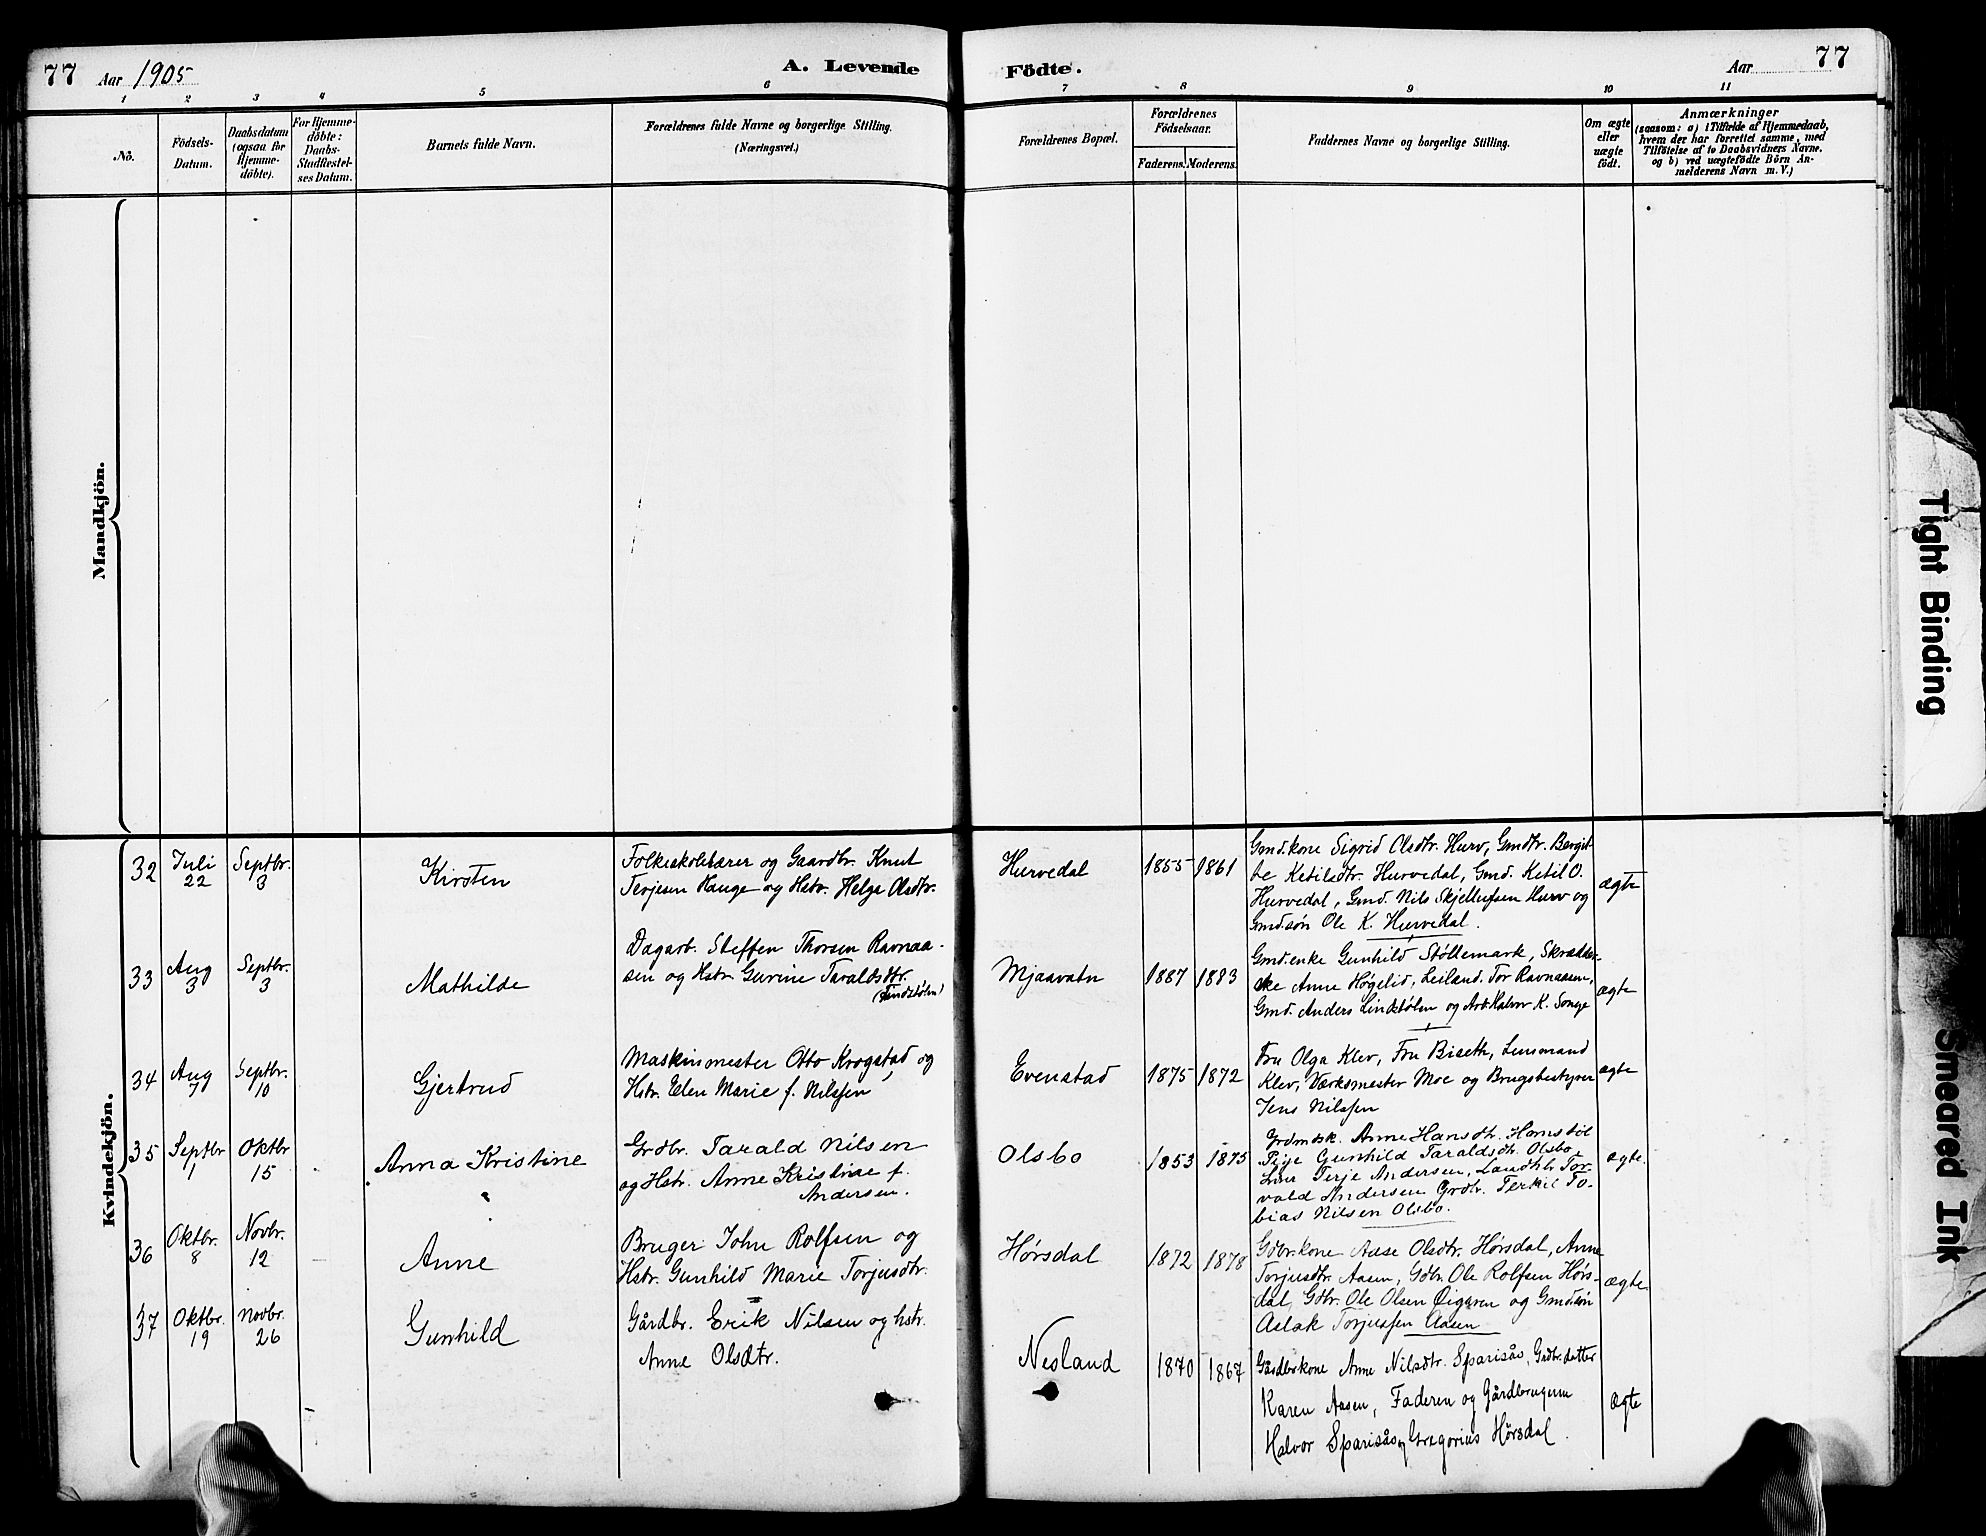 77 Aar 1905 A. Levende Födte. Aar 77
1 2 3 4 5 6 7 8 9 10 11
No.
Födsels-
Datum.
Daabsdatum
(ogsaa for
Hjemme-
döbte).
For Hjemme-
döbte:
Daabs-
Stadfæstel-
ses Datum.
Barnets fulde Navn.
Forældrenes fulde Navne og borgerlige Stilling.
(Næringsvei.)
Forældrenes Bopæl.
Forældrenes
Födselsaar.
Faderens. Moderens.
Faddernes Navne og borgerlige Stilling.
Om ægte
eller
uægte
födt.
Anmærkninger
(saasom: a) i Tilfælde af Hjemmedaab,
hvem der har forrettet samme, med
Tilföielse af to Daabsvidners Navne.
og b) ved uægtefödte Börn An-
melderens Navn m. V.)
Mandkjön.
Kvindekjön.
32
Juli
22
Septbr.
3
Kirsten
Folkeskolelærer og Gaardbr. Knut
Terjesen Hauge og Hstr. Helga Olsdtr.
Hurvedal
1855 1861
Gmd.kone Sigrid Olsdtr. Hurv, Gmdtr. Bergit-
he Ketilsdtr. Hurvedal, Gmd. Ketil O.
Hurvedal, Gmd. Nils Skjellufsen Hurv og
Gmdsøn Ole K. Hurvedal.
ægte
33
Aug
3
Septbr.
3
Mathilde
Dagarb. Steffen Thorsen Ravnaa-
sen og Hstr. Gurine Taraldsdtr.
Mjaavatn
1887 1883
Gmd.enke Gunhild Støllemark, Skrædder-
ske Anne Høgelid, Leiland. Tor Ravnaasen,
Gmd. Anders Lindtølen og Arb. Halvor K. Songe
ægte
34
Aug
7
Septbr.
10
Gjertrud
Maskinmester Otto Krogstad og
Hstr. Elen Marie f. Nilssen
Evenstad
1875 1872
Fru Olga Klev, Fru Biseth, Lensmand
Klev, Værksmester Moe og Brugsbestyrer
Jens Nilssen
ægte
35
Septbr
1
Oktbr
15
Anna Kristine
Grdbr. Tarald Nilsen
og Hstr. Anne Kristine f.
Andersen.
Olsbo
1853 1875
Grdmdsk. Anne Hansdtr. Homstöl
Pige Gunhild Taraldsdtr. Olsbo
Terje Andersen, Landhb. Tor-
vald Andersen Grdbr. Terkil To-
bias Nilsen Olsbo.
ægte.
36
Oktbr.
8
Novbr.
12
Anne
Bruger John Rolfsen og
Hstr. Gunhild Marie Torjusdtr.
Hørsdal
1872 1878
Gdbr.kone Aase Olsdtr. Hørsdal, Anne
Torjusdtr. Aasen, Gdbr. Ole Rolfsen Hørs-
dal, Gdbr. Ole Olsen Øigaren og Gmdsøn
Aslak Torjussen Aasen
ægte.
37
Oktbr.
19
Novbr.
26
Gunhild
Gårdbr. Erik Nilsen og hstr.
Anne Olsdtr.
Nesland
1870 1867
Gårdbrkone Anne Nilsdtr. Sparisås, Grdbr.datter
Karen Aasen, Faderen og Gårdbrugerne
Halvor Sparisås og Gregorius Hørsdal.
ægte
Tight Binding
Smeared Ink